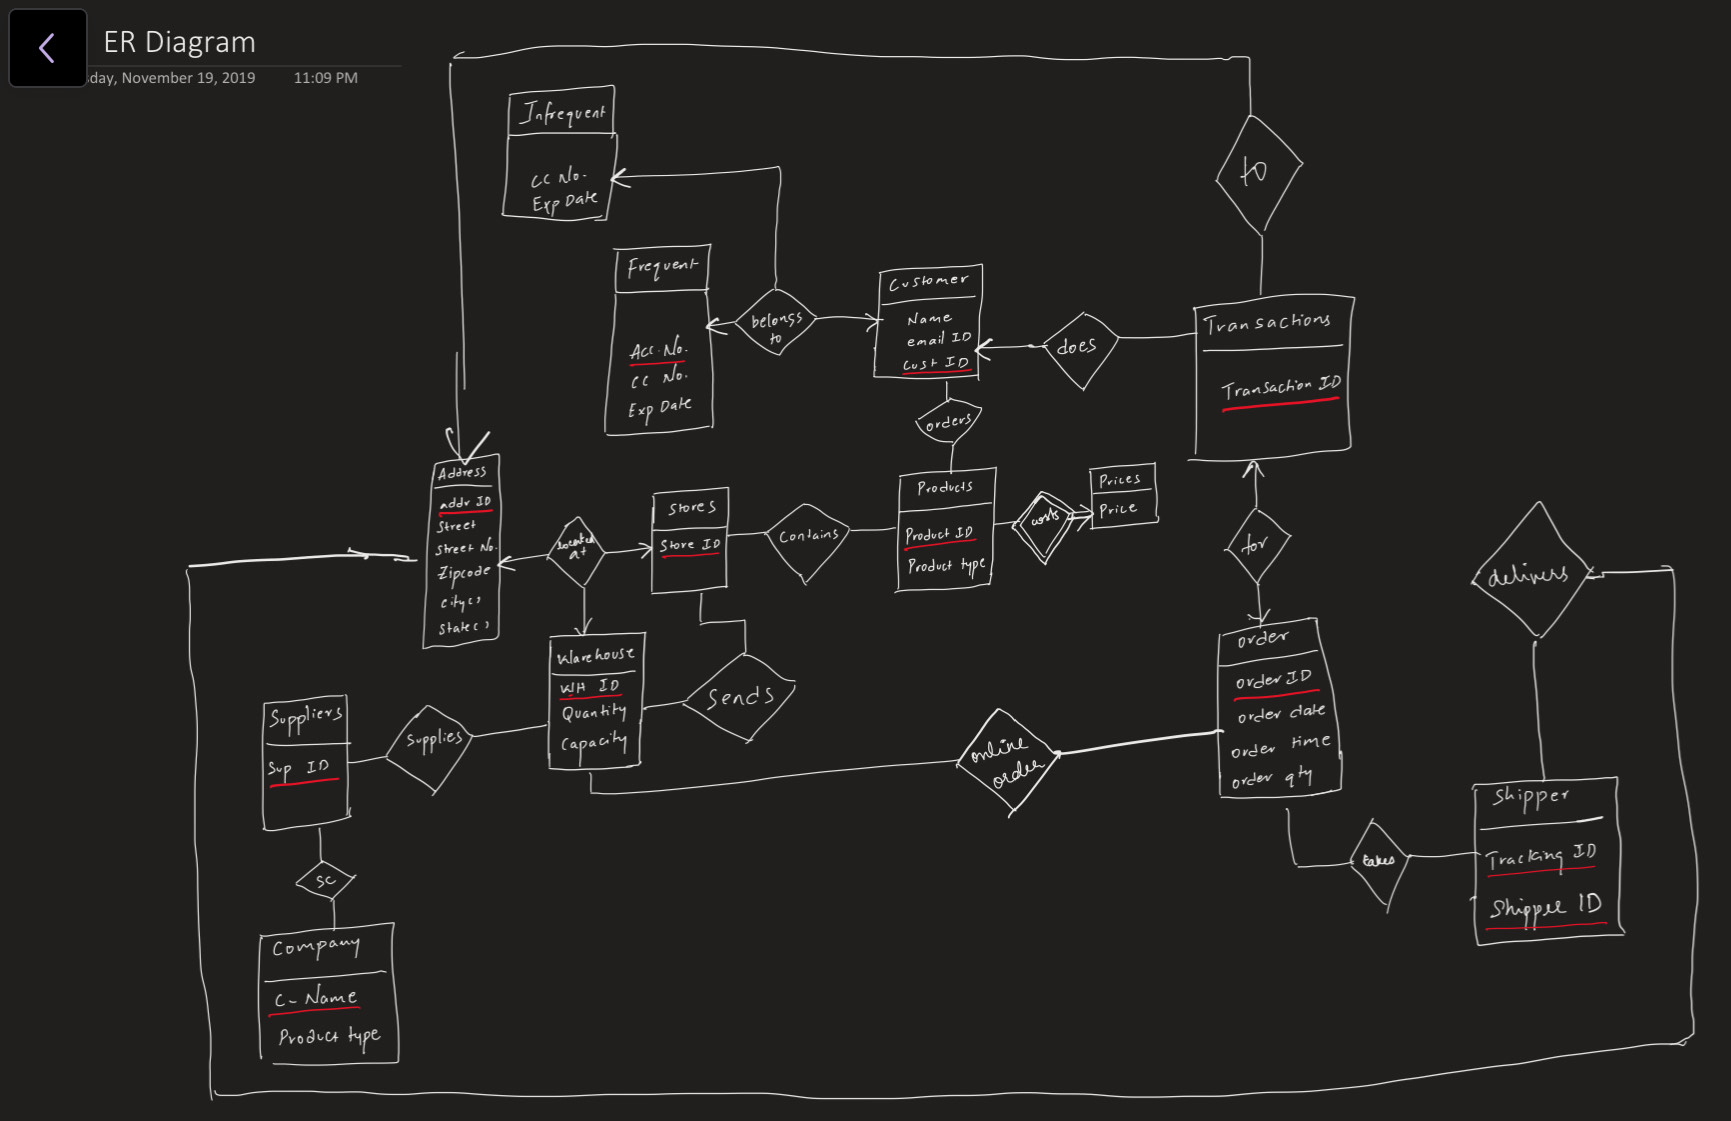 ER Diagram
sday, November 19, 2019 11:09 PM
Infrequent
CC No.
Exp Date
to
Frequent
Acc. No.
CC No.
Exp Date
belongs
to
Customer
Name
email ID
Cust ID
does
Transactions
Transaction ID
orders
Address
addr ID
Street
Street No.
Zipcode
city()
State()
located
at
Stores
Store ID
Contains
Products
Product ID
Product type
costs
Prices
Price
for
delivers
Warehouse
WH ID
Quantity
Capacity
Sends
order
order ID
order date
order time
order qty
Suppliers
Sup ID
Supplies
online
order
takes
Shipper
Tracking ID
Shipper ID
SC
Company
C-Name
Product type